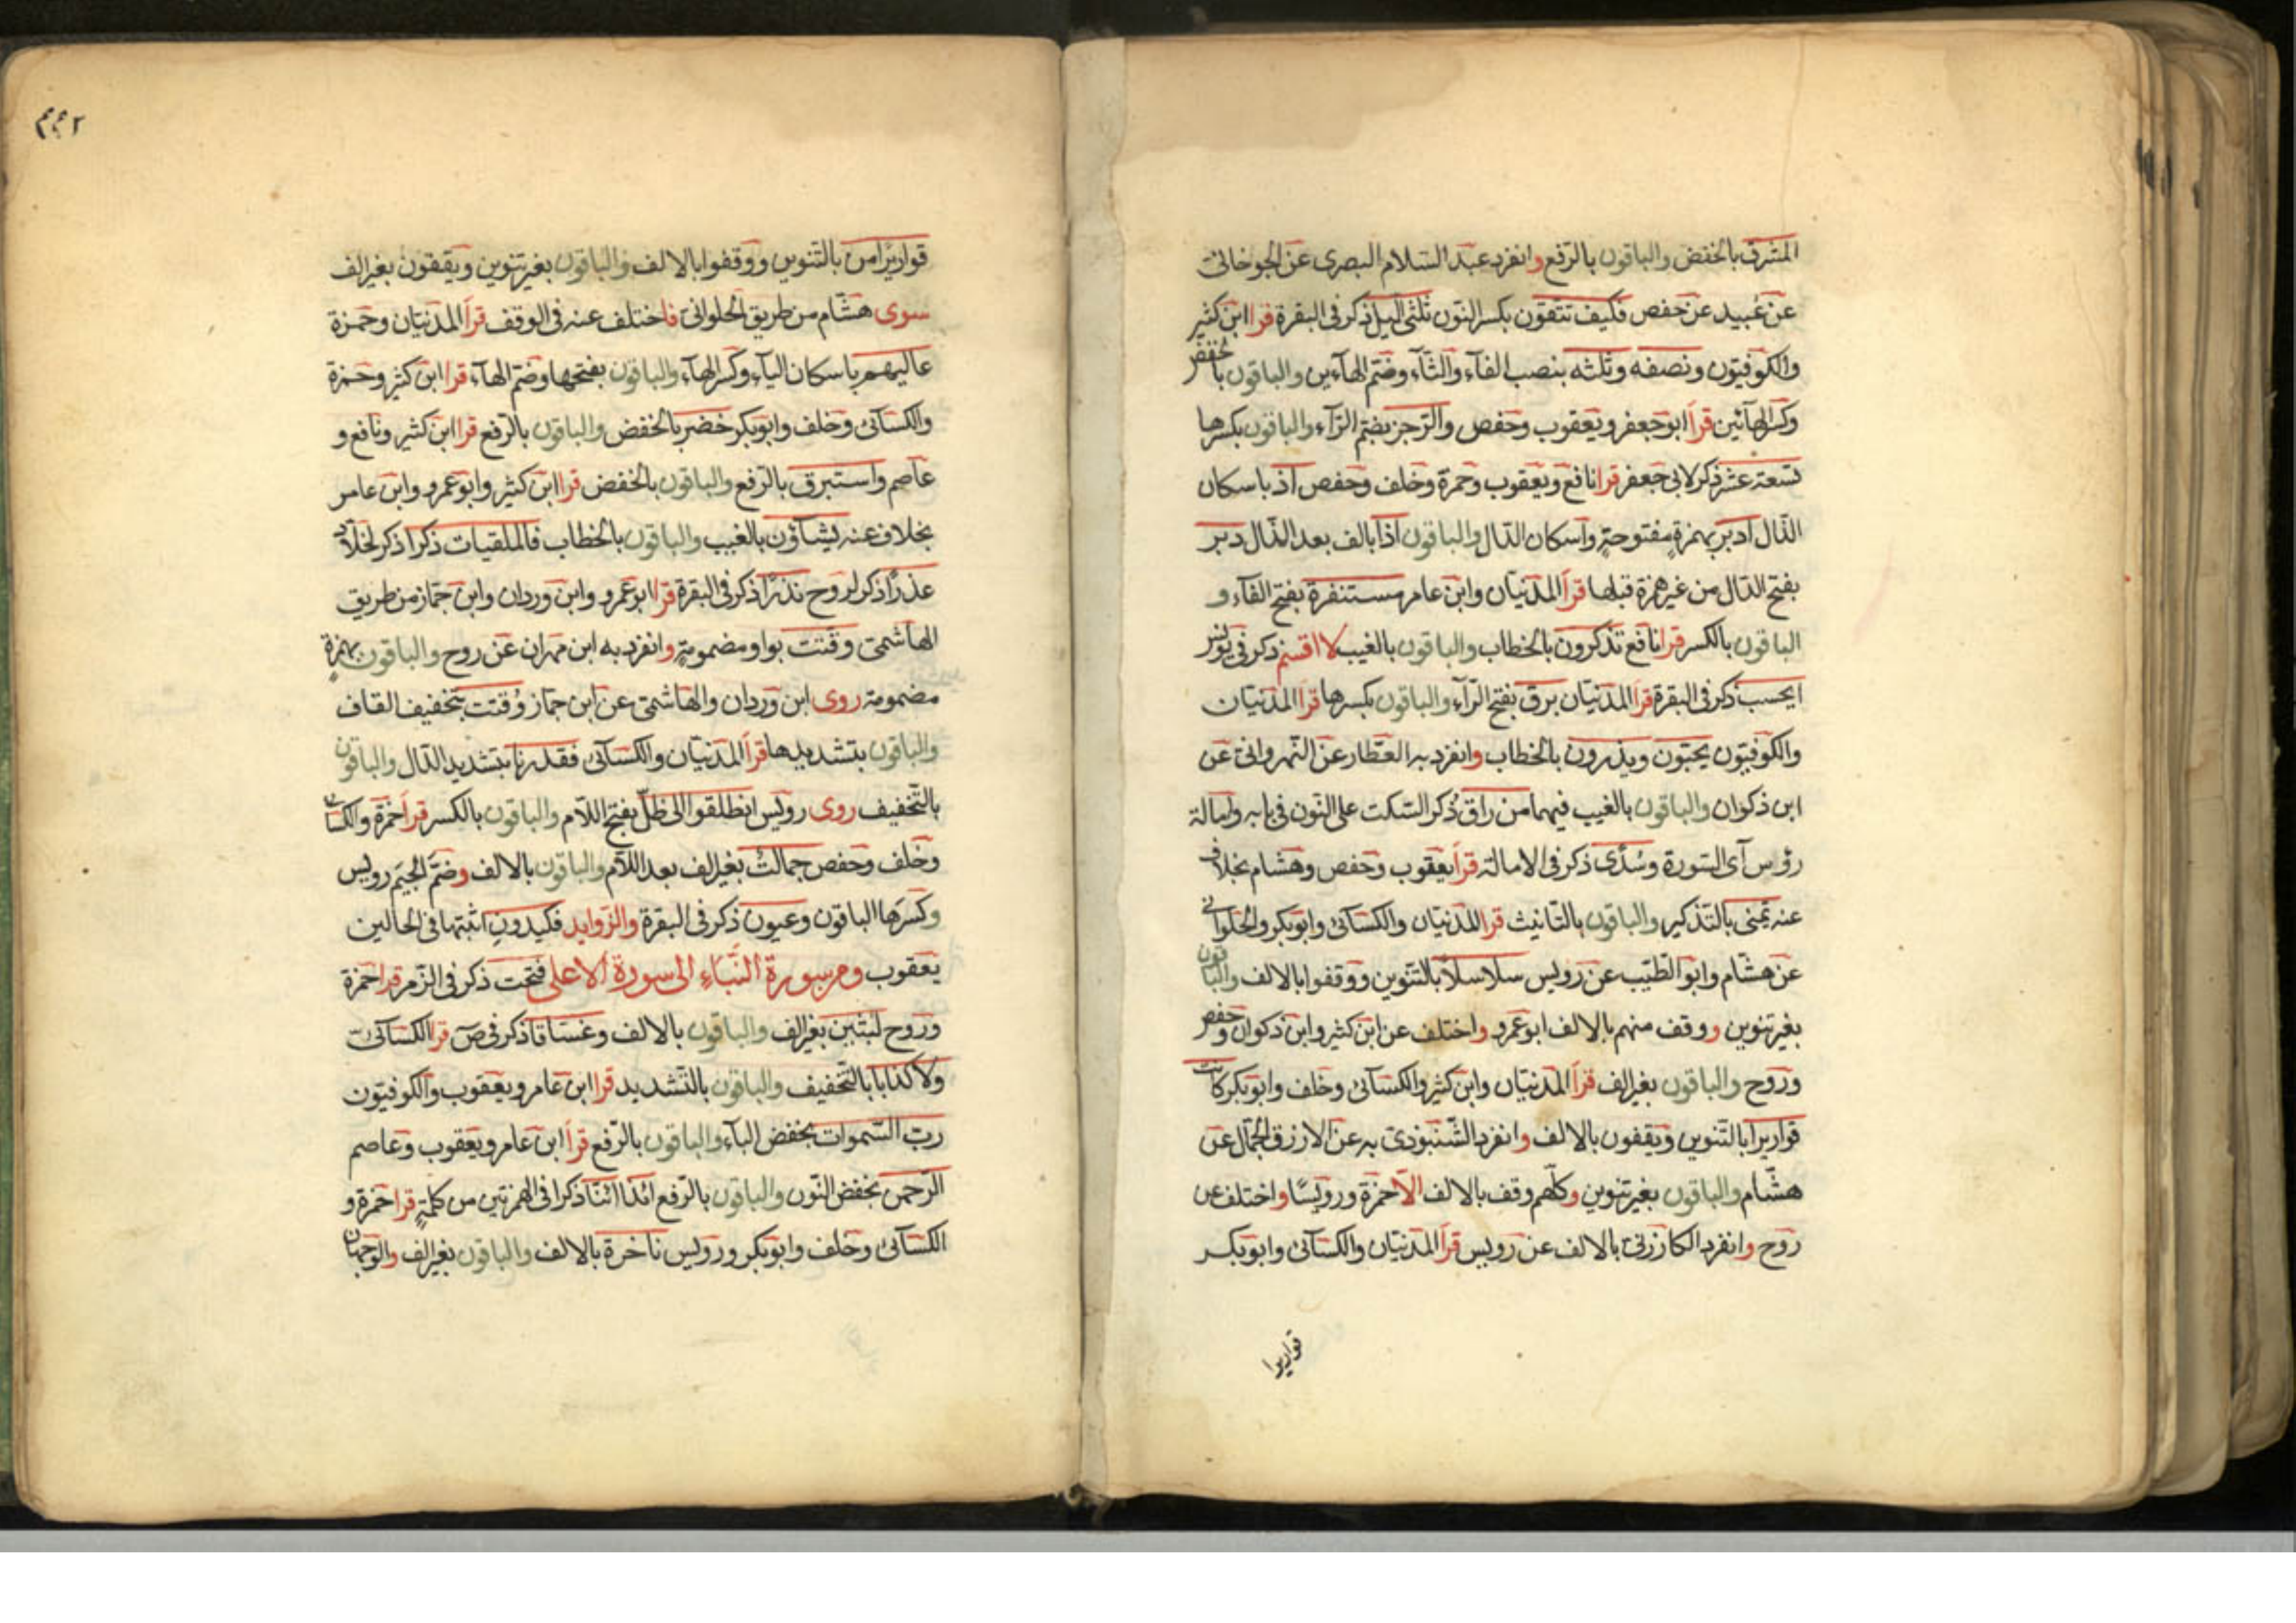 المشرق بالخفض والباقون بالرّفع وانفرد عبد السّلام البصرى عن الجوخانىّ
عن عُبيد عن حفص فكيف تتّقون بكسر النّون ثلثى اليل ذكر فى البقرة قرا ابن كثير
والكوفيّون ونصفه وثلثه بنصب الفآء والثّآء وضمّ الهآءين والباقون بالخفض
وكسر الهآئين قرأ ابو جعفر ويعقوب وحفص والرّجز بضمّ الرّآء والباقون بكسرها
تسعة عشر ذكر لابى جعفر قرا نافع ويعقوب وحمزة وخلف وحفص اذ باسكان
الذّال ادبر بهمزةٍ مفتوحةٍ واسكان الدّال والباقون اذا بالف بعد الذّال دبر
بفتح الدّال من غير همزة قبلها قرأ المدنيّان وابن عامر مستنفرة بفتح الفآء و
الباقون بالكسر قرا نافع تذكرون بالخطاب والباقون بالغيب لا اقسم ذكر فى يونس
ايحسب ذكر فى البقرة قرأ المدنيّان برق بفتح الرّآء والباقون بكسرها قرأ المدنيّان
والكوفيّون يحبّون ويذرون بالخطاب وانفرد به العطّار عن النّهروانىّ عن
ابن ذكوان والباقون بالغيب فيهما من راق ذُكر السّكت على النّون فى بابه وامالة
رؤس آى السّورة وسُدًى ذكر فى الامالة قرأ يعقوب وحفص وهشام بخلاف
عنه يمنى بالتّذكير والباقون بالتّانيث قرا المدنيّان والكسآئىّ وابو بكر والحلوانى
عن هشام وابو الطّيّب عن رويس سلاسلاً بالتّنوين ووقفوا بالالف والباقون
بغير تنوين ووقف منهم بالالف ابو عمرو واختلف عن ابن كثير وابن ذكوان وحفص
وروح والباقون بغير الف قرأ المدنيّان وابن كثير والكسآئىّ وخلف وابو بكر كانت
قواريراً بالتّنوين ويقفون بالالف وانفرد الشّنبوذىّ به عن الازرق الجمّال عن
هشام والباقون بغير تنوين وكلّهم وقف بالالف الاّ حمزة ورويسًا واختلف عن
روح وانفرد الكارزينىّ بالالف عن رويس قرأ المدنيّان والكسآئىّ وابو بكر
قواريرا
٢٤٢
قواريرًا من بالتّنوين ووقفوا بالالف والباقون بغير تنوين ويقفون بغير الف
سوى هشام من طريق الحلوانىّ فاختلف عنه فى الوقف قرأ المدنيّان وحمزة
عاليهم باسكان اليآء وكسر الهآء والباقون بفتحها وضمّ الهآء قرا ابن كثير وحمزة
والكسآئىّ وخلف وابو بكر خضر بالخفض والباقون بالرّفع قرا ابن كثير ونافع و
عاصم واستبرق بالرّفع والباقون بالخفض قرا ابن كثير وابو عمرو وابن عامر
بخلاف عنه يشآؤن بالغيب والباقون بالخطاب فالملقيات ذكرا ذكر لخلاّد
عذرًا ذكر لروح نذرًا ذكر فى البقرة قرا ابو عمرو وابن وردان وابن جمّاز من طريق
الهاشمىّ وقتت بواو مضمومةٍ وانفرد به ابن مهران عن روح والباقون بهمزةٍ
مضمومة روى ابن وردان والهاشمىّ عن ابن جمّاز وُقتت بتخفيف القاف
والباقون بتشديدها قرأ المدنيّان والكسآئىّ فقدرنا بتشديد الدّال والباقون
بالتّخفيف روى رويس انطلقوا الى ظلّ بفتح اللاّم والباقون بالكسر قرأ حمزة والكسائى
وخلف وحفص جمالتٌ بغير الف بعد اللاّم والباقون بالالف وضمّ الجيم رويس
وكسرها الباقون وعيون ذكر فى البقرة والزّوايد فكيدون اثبتها فى الحالين
يعقوب ومن سورة النّباء الى سورة الاعلى فتحت ذكر فى الزّمر قرا حمزة
وروح لبثين بغير الف والباقون بالالف وغسّاقا ذكر فى صۤ قرا الكسآئىّ
ولا كذابا بالتّخفيف والباقون بالتّشديد قرا ابن عامر ويعقوب والكوفيّون
ربّ السّموات بخفض البآء والباقون بالرّفع قرأ ابن عامر ويعقوب وعاصم
الرّحمن بخفض النّون والباقون بالرّفع ائذا ائنّا ذكرا فى الهمزتين من كلمةٍ قرا حمزة و
الكسآئىّ وخلف وابو بكر ورويس ناخرة بالالف والباقون بغير الف والوجهان